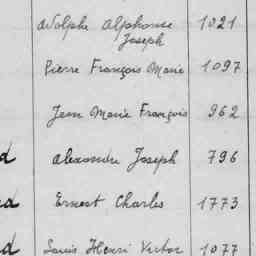 Adolphe Alphonse 1021
Joseph
Pierre François Marie 1097
Jean Marie François 962
d Alexandre Joseph 796
d Ernest Charles 1773
d Louis Henri Victor 1077